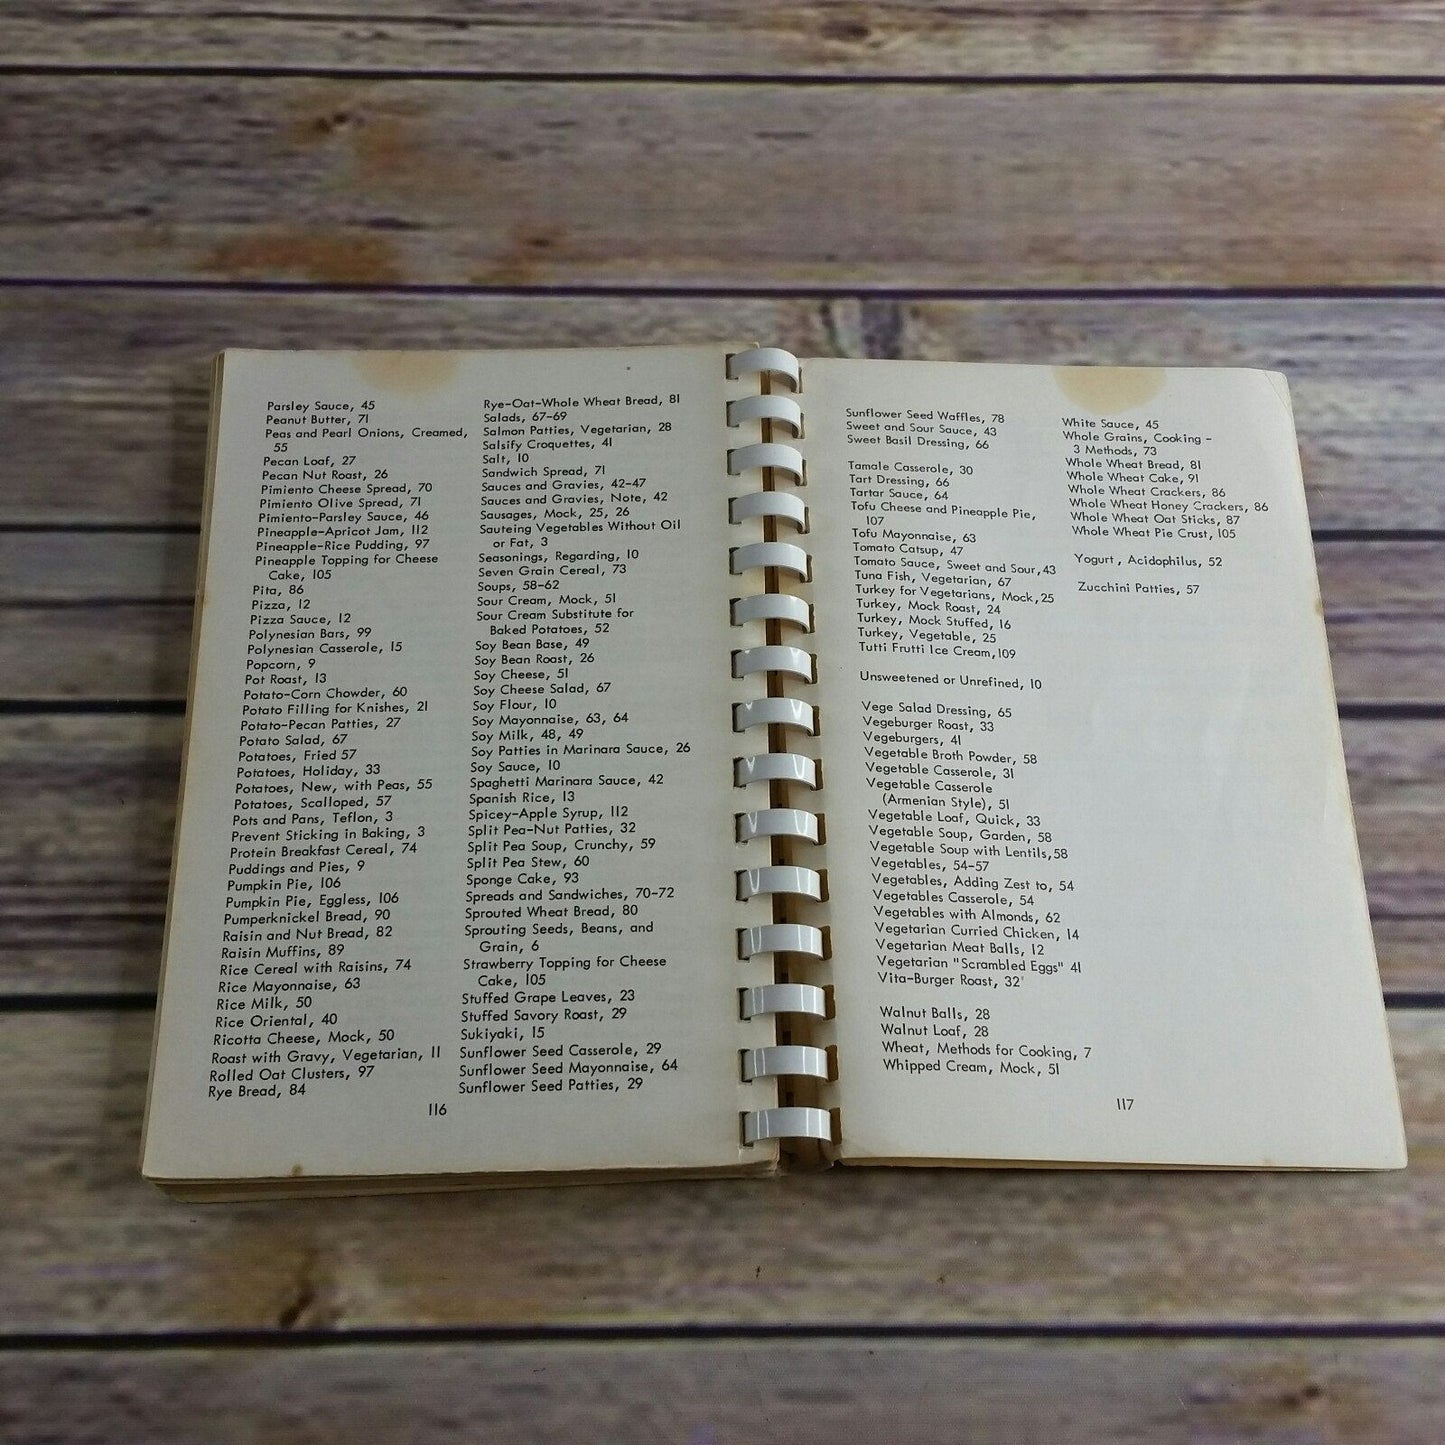 Parsley Sauce, 45
Peanut Butter, 71
Peas and Pearl Onions, Creamed,
55
Pecan Loaf, 27
Pecan Nut Roast, 26
Pimiento Cheese Spread, 70
Pimiento Olive Spread, 71
Pimiento-Parsley Sauce, 46
Pineapple-Apricot Jam, 112
Pineapple-Rice Pudding, 97
Pineapple Topping for Cheese
Cake, 105
Pita, 86
Pizza, 12
Pizza Sauce, 12
Polynesian Bars, 99
Polynesian Casserole, 15
Popcorn, 9
Pot Roast, 13
Potato-Corn Chowder, 60
Potato Filling for Knishes, 21
Potato-Pecan Patties, 27
Potato Salad, 67
Potatoes, Fried 57
Potatoes, Holiday, 33
Potatoes, New, with Peas, 55
Potatoes, Scalloped, 57
Pots and Pans, Teflon, 3
Prevent Sticking in Baking, 3
Protein Breakfast Cereal, 74
Puddings and Pies, 9
Pumpkin Pie, 106
Pumpkin Pie, Eggless, 106
Pumperknickel Bread, 90
Raisin and Nut Bread, 82
Raisin Muffins, 89
Rice Cereal with Raisins, 74
Rice Mayonnaise, 63
Rice Milk, 50
Rice Oriental, 40
Ricotta Cheese, Mock, 50
Roast with Gravy, Vegetarian, 11
Rolled Oat Clusters, 97
Rye Bread, 84
Rye-Oat-Whole Wheat Bread, 81
Salads, 67-69
Salmon Patties, Vegetarian, 28
Salsify Croquettes, 41
Salt, 10
Sandwich Spread, 71
Sauces and Gravies, 42-47
Sauces and Gravies, Note, 42
Sausages, Mock, 25, 26
Sauteing Vegetables Without Oil
or Fat, 3
Seasonings, Regarding, 10
Seven Grain Cereal, 73
Soups, 58-62
Sour Cream, Mock, 51
Sour Cream Substitute for
Baked Potatoes, 52
Soy Bean Base, 49
Soy Bean Roast, 26
Soy Cheese, 51
Soy Cheese Salad, 67
Soy Flour, 10
Soy Mayonnaise, 63, 64
Soy Milk, 48, 49
Soy Patties in Marinara Sauce, 26
Soy Sauce, 10
Spaghetti Marinara Sauce, 42
Spanish Rice, 13
Spicey-Apple Syrup, 112
Split Pea-Nut Patties, 32
Split Pea Soup, Crunchy, 59
Split Pea Stew, 60
Sponge Cake, 93
Spreads and Sandwiches, 70-72
Sprouted Wheat Bread, 80
Sprouting Seeds, Beans, and
Grain, 6
Strawberry Topping for Cheese
Cake, 105
Stuffed Grape Leaves, 23
Stuffed Savory Roast, 29
Sukiyaki, 15
Sunflower Seed Casserole, 29
Sunflower Seed Mayonnaise, 64
Sunflower Seed Patties, 29
116
Sunflower Seed Waffles, 78
Sweet and Sour Sauce, 43
Sweet Basil Dressing, 66
Tamale Casserole, 30
Tart Dressing, 66
Tartar Sauce, 64
Tofu Cheese and Pineapple Pie,
107
Tofu Mayonnaise, 63
Tomato Catsup, 47
Tomato Sauce, Sweet and Sour,43
Tuna Fish, Vegetarian, 67
Turkey for Vegetarians, Mock,25
Turkey, Mock Roast, 24
Turkey, Mock Stuffed, 16
Turkey, Vegetable, 25
Tutti Frutti Ice Cream,109
Unsweetened or Unrefined, 10
Vege Salad Dressing, 65
Vegeburger Roast, 33
Vegeburgers, 41
Vegetable Broth Powder, 58
Vegetable Casserole, 31
Vegetable Casserole
(Armenian Style), 51
Vegetable Loaf, Quick, 33
Vegetable Soup, Garden, 58
Vegetable Soup with Lentils,58
Vegetables, 54-57
Vegetables, Adding Zest to, 54
Vegetables Casserole, 54
Vegetables with Almonds, 62
Vegetarian Curried Chicken, 14
Vegetarian Meat Balls, 12
Vegetarian "Scrambled Eggs" 41
Vita-Burger Roast, 32
Walnut Balls, 28
Walnut Loaf, 28
Wheat, Methods for Cooking, 7
Whipped Cream, Mock, 51
White Sauce, 45
Whole Grains, Cooking -
3 Methods, 73
Whole Wheat Bread, 81
Whole Wheat Cake, 91
Whole Wheat Crackers, 86
Whole Wheat Honey Crackers, 86
Whole Wheat Oat Sticks, 87
Whole Wheat Pie Crust, 105
Yogurt, Acidophilus, 52
Zucchini Patties, 57
117